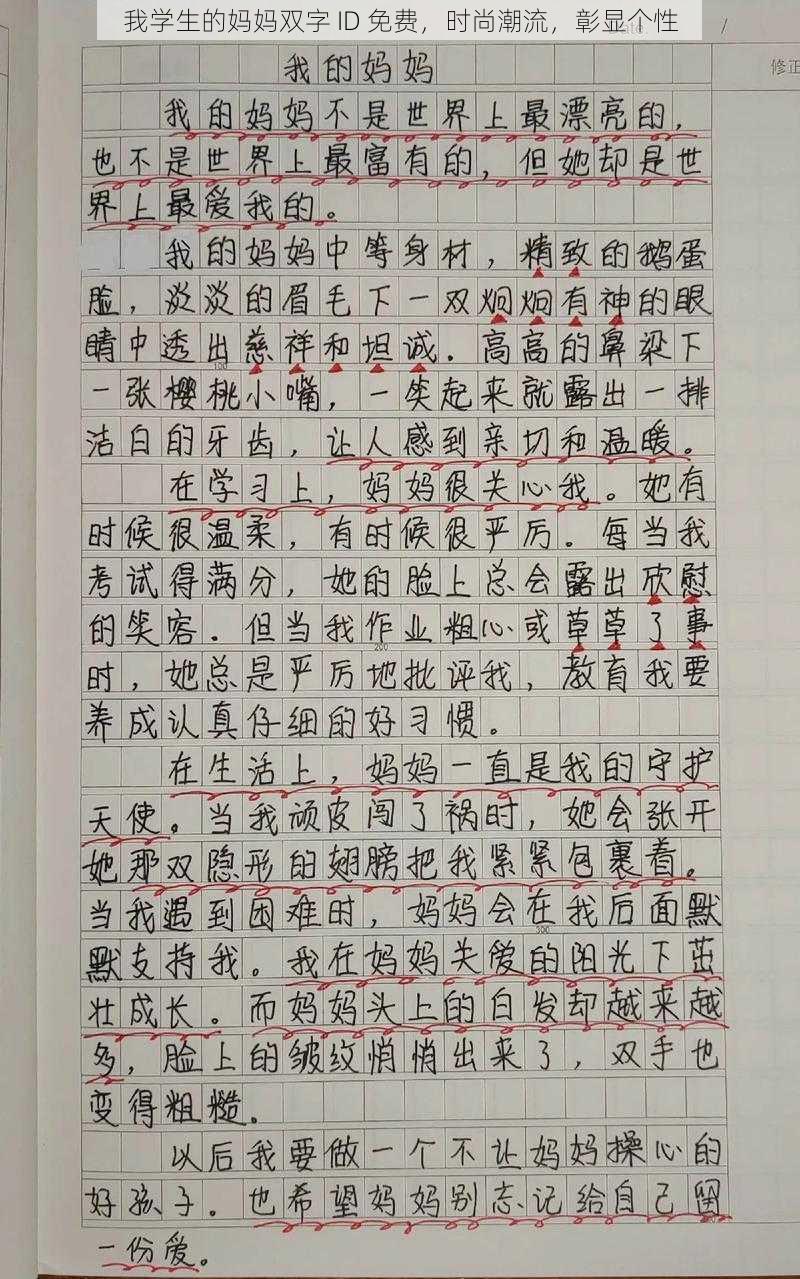 我学生的妈妈双字 ID 免费，时尚潮流，彰显个性
Date. /
修正
我的妈妈
我的妈妈不是世界上最漂亮的，
也不是世界上最富有的，但她却是世
界上最爱我的。
我的妈妈中等身材，精致的鹅蛋
脸，淡淡的眉毛下一双炯炯有神的眼
睛中透出慈祥和坦诚．高高的鼻梁下
100
一张樱桃小嘴，一笑起来就露出一排
洁白的牙齿，让人感到亲切和温暖。
在学习上，妈妈很关心我。她有
时候很温柔，有时候很严厉．每当我
考试得满分，她的脸上总会露出欣慰
的笑容．但当我作业粗心或草草了事
200
时，她总是严厉地批评我，教育我要
养成认真仔细的好习惯。
在生活上，妈妈一直是我的守护
天使。当我顽皮闯了祸时，她会张开
她那双隐形的翅膀把我紧紧包裹着。
当我遇到困难时，妈妈会在我后面默
300
默支持我。我在妈妈关爱的阳光下茁
壮成长．而妈妈头上的白发却越来越
多，脸上的皱纹悄悄出来了，双手也
变得粗糙．
以后我要做一个不让妈妈操心的
好孩子．也希望妈妈别忘记给自己留
一份爱。